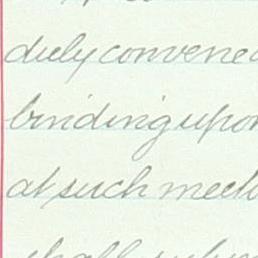 duly convened
binding upon
at such meet
shall